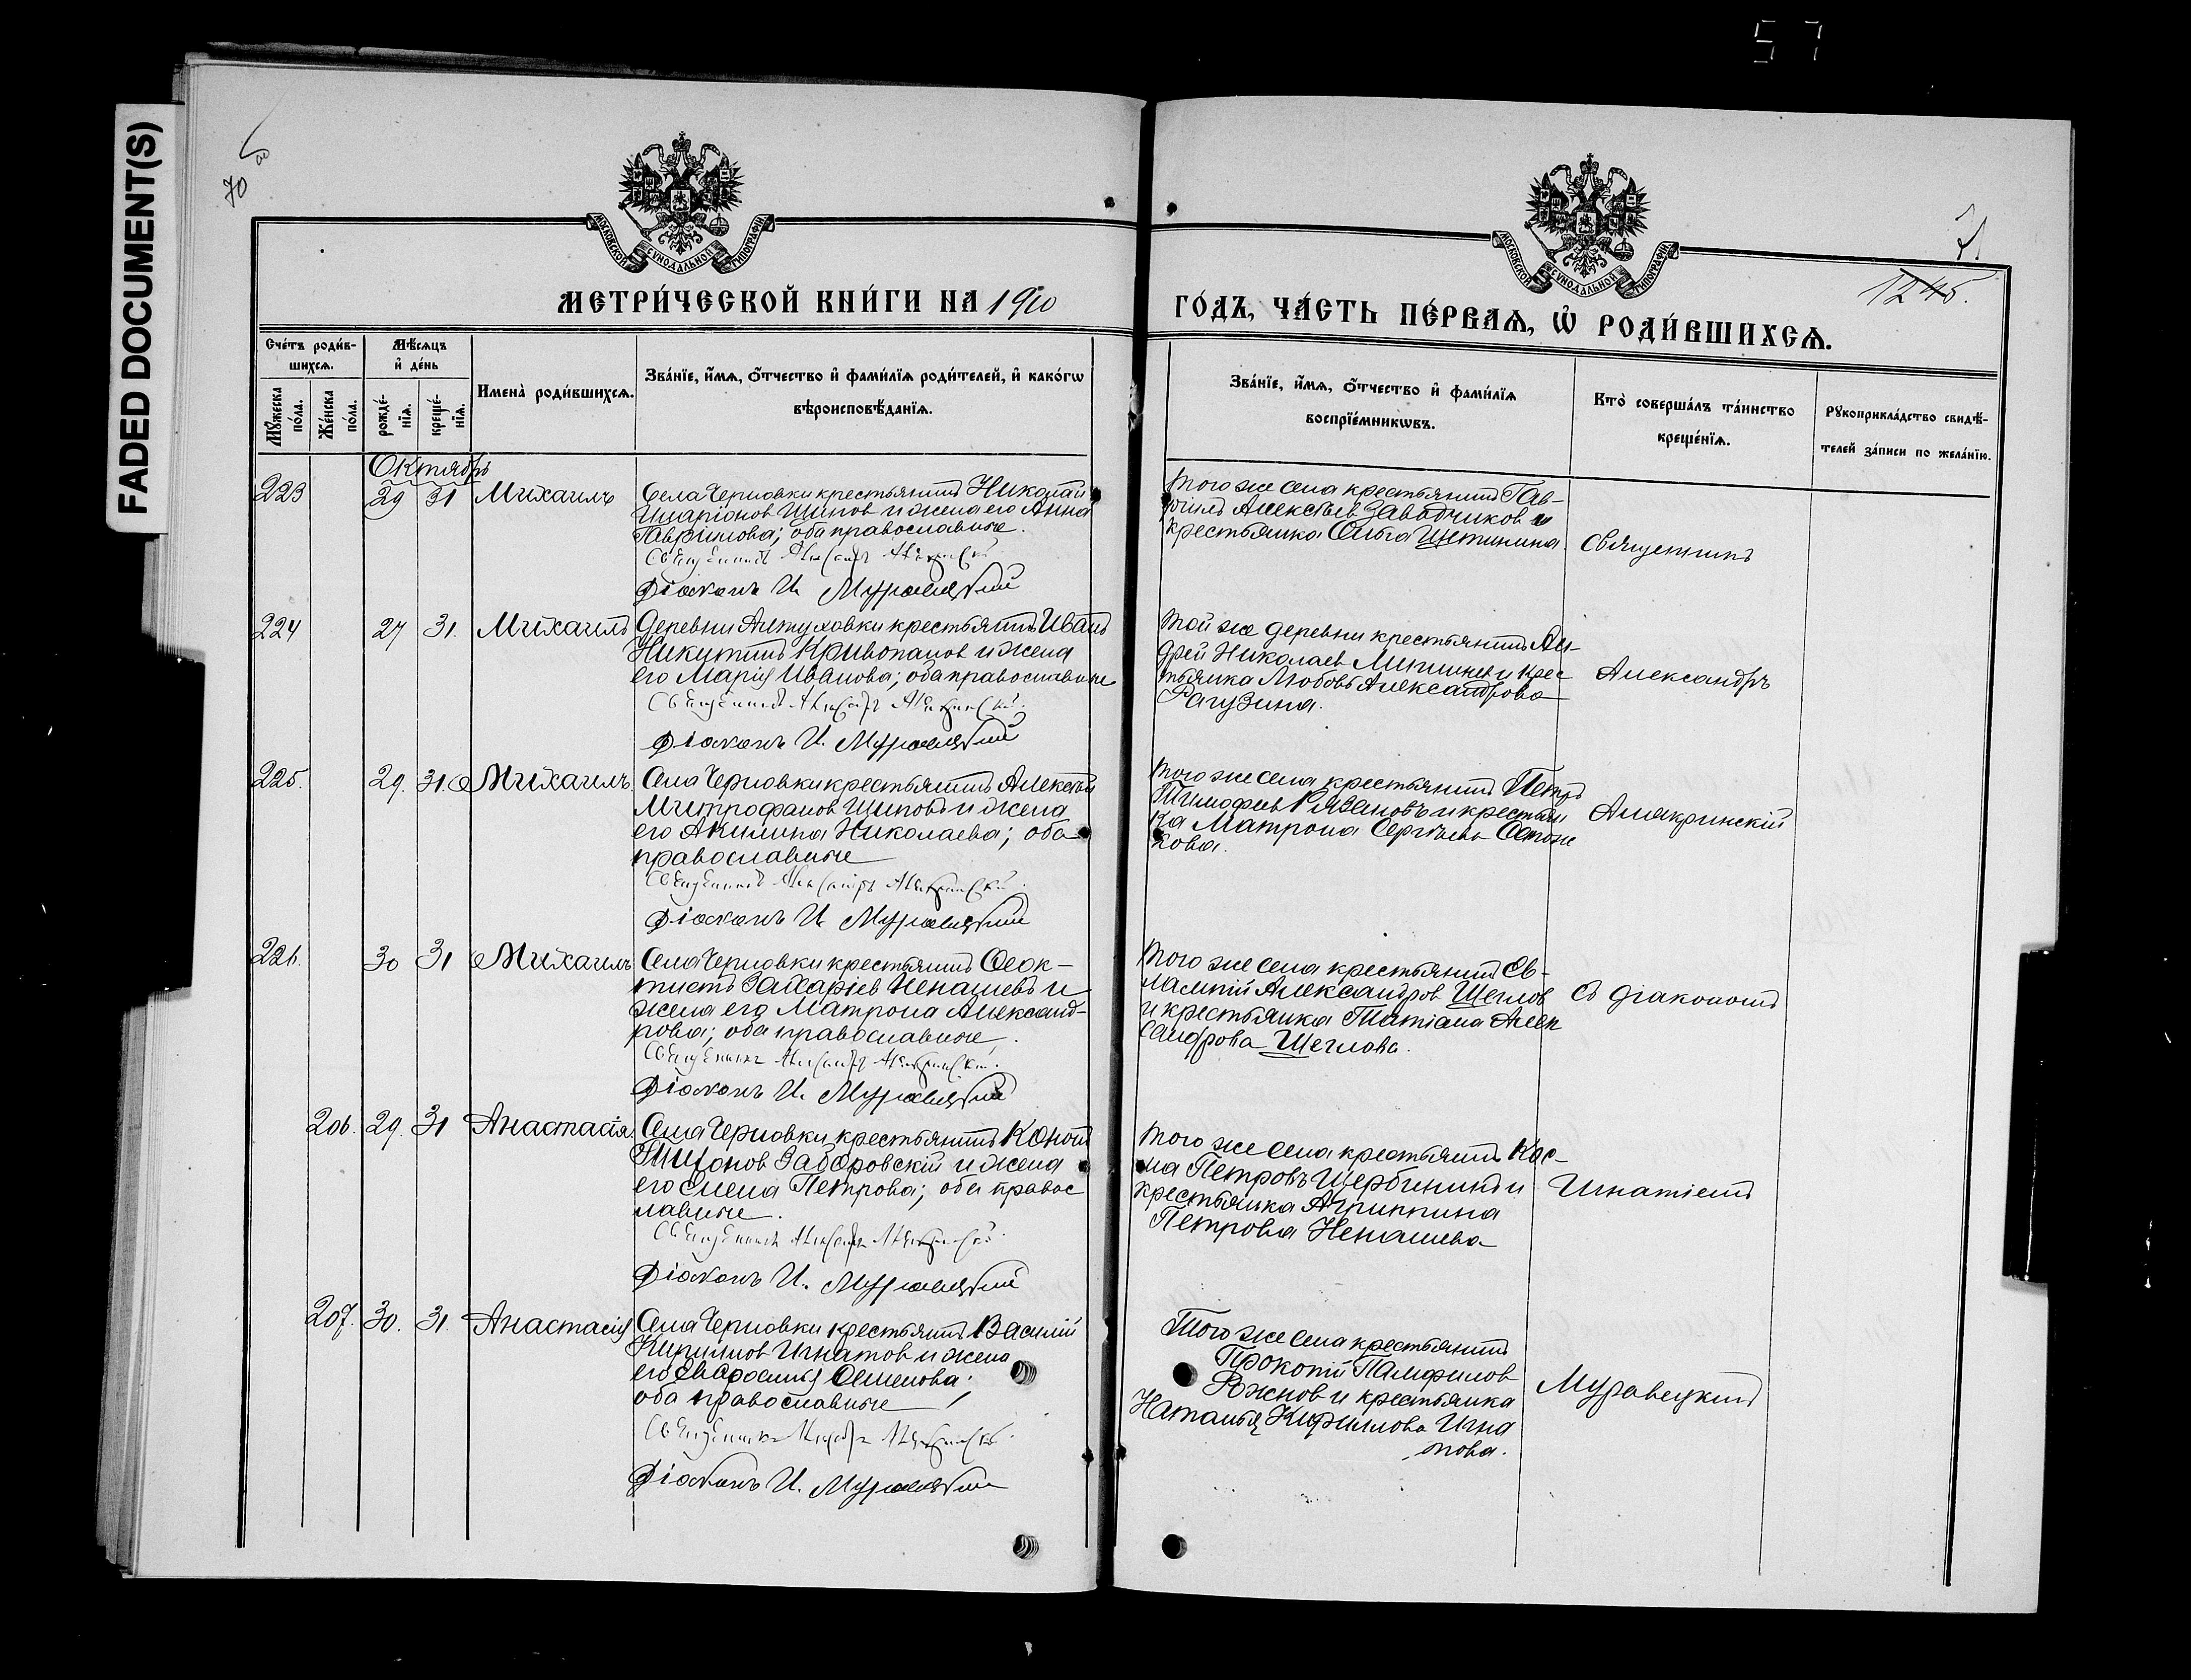 57
FADED DOCUMENT(S)
70
71
МОСКОВСКОЙ СѴНОДАЛЬНОЙ ТИПОГРАФІИ
МОСКОВСКОЙ СѴНОДАЛЬНОЙ ТИПОГРАФІИ
1245.
МЕТРИ́ЧЕСКОЙ КНИ́ГИ НА 1910
ГО́ДЪ, ЧА́СТЬ ПЕ́РВАѦ, Ѡ҆ РОДИ́ВШИХСѦ.
Сче́тъ роди́в-
шихсѧ.
Мꙋ́жеска по́ла.
Же́нска по́ла.
Мѣ́сѧцъ
и҆ де́нь
рожде́-
нїѧ.
креще́-
нїѧ.
Имена̀ роди́вшихсѧ.
Зва́нїе, и҆́мѧ, ѻ҆́тчество и҆ фами́лїѧ роди́телей, и҆ како́гѡ
вѣроисповѣ́данїѧ.
Зва́нїе, и҆́мѧ, ѻ҆́тчество и҆ фами́лїѧ
воспрїе́мникѡвъ.
Кто̀ соверша́лъ та́инство
креще́нїѧ.
Рꙋкоприкла́дство свидѣ́-
телей за́писи по жела́нїю.
Октябрь
223 29 31 Михаилъ
Села Черновки крестьянинъ Николай
Иларіонов Щипов и жена его Анна
Гаврилова; оба православные.
Священникъ Александръ Алякринскій
Діаконъ И. Муравецкий
Того же села крестьянинъ Гав-
ріилъ Алексѣев Заводчиков и
крестьянка Ольга Щетинина.
Священникъ
224 27 31. Михаилъ
Деревни Алтуховки крестьянинъ Иванъ
Никитинъ Кривопалов и жена
его Марія Иванова; оба православные
Священникъ Александръ Алякринскій.
Діаконъ И. Муравецкий
Той же деревни крестьянинъ Ан-
дрей Николаев и крес
тьянка Любовь Александрова
Рагузина.
Александръ
225. 29. 31. Михаилъ.
Села Черновки крестьянинъ Алексѣй
Митрофанов Щиповъ и жена
его Акилина Николаева; оба
православные
Священникъ Александръ Алякринскій.
Діаконъ И. Муравецкий
Того же села крестьянинъ Петръ
Тимофеев и крестьян
ка Матрона Сергѣева
кова.
Алякринскій
226. 30 31 Михаилъ
Села Черновки крестьянинъ Ѳеок-
тистъ Захаріев Ненашевъ и
жена его Матрона Александ-
рова; оба православные.
Священникъ Александръ Алякринскій.
Діаконъ И. Муравецкий
Того же села крестьянинъ Ев-
лампій Александров Щеглов
и крестьянка Татіана Алек
сандрова Щеглова.
съ діакономъ
206. 29. 31 Анастасія.
Села Черновки крестьянинъ Кононъ
Тихонов Заборовскій и жена
его Елена Петрова; оба правос
лавные.
Священникъ Александръ Алякринскій.
Діаконъ И. Муравецкий
Того же села крестьянинъ Кос-
ма Петровъ Щербининъ и
крестьянка Агриппина
Петровна Ненашева
Игнатіемъ
207. 30. 31. Анастасія
Села Черновки крестьянинъ Василій
Кириллов Игнатов и жена
его Евфросинья Семенова;
оба православные
Священникъ Александръ Алякринскій.
Діаконъ И. Муравецкий
Того же села крестьянинъ
Прокопій Памфилов
Рожнов и крестьянка
Наталья Кириллова Игна
това.
Муравецкимъ